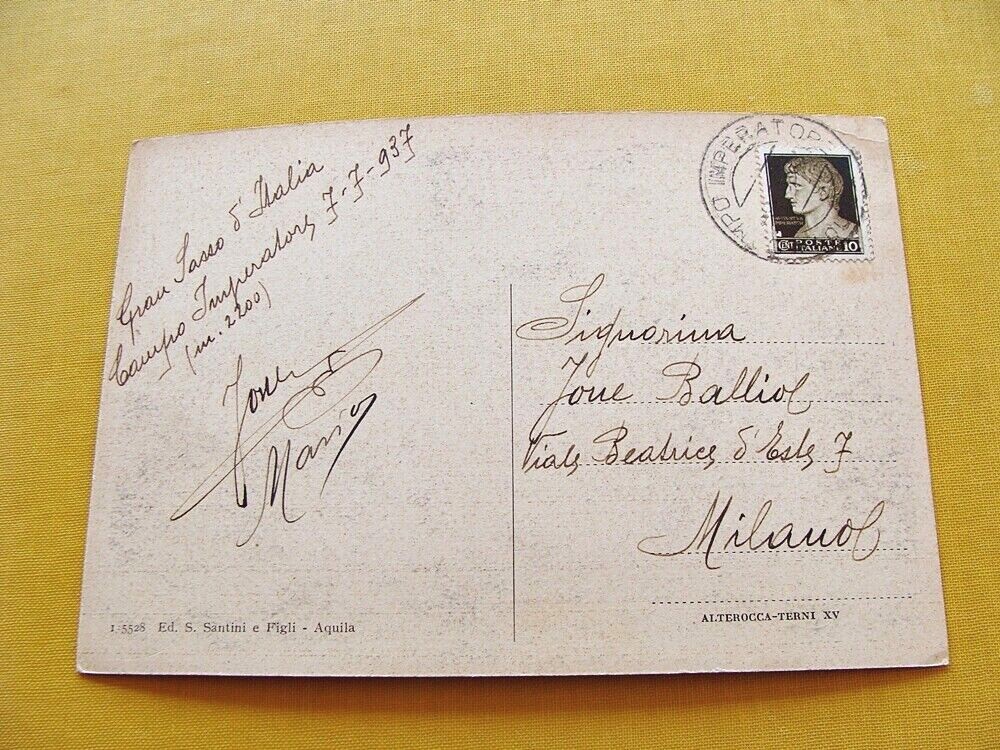 Gran Sasso d'Italia
Campo Imperatore, 7-7-937
(m. 2200)
Mario
AMPO IMPERATOR
CENT POSTE ITALIANE 10
Signorina
Jone Balliol
Viale Beatrice d'Este 7
Milano
1-5528 Ed. S. Santini e Figli - Aquila
ALTEROCCA-TERNI XV